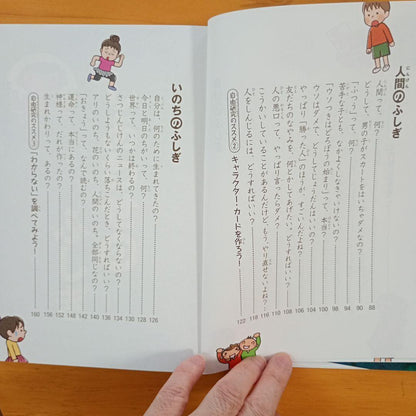 人間のふしぎ
人間って、何? 88
どうして、男の子がスカートをはいちゃダメなの? 90
「ふつう」って、何? 94
苦手な子とも、なかよくしなきゃいけないの? 98
「ウソつきはどろぼうの始まり」って、本当? 100
ウソはダメで、どうしてじょうだんはいいの? 104
やっぱり「勝った人」のほうが、すごいんだよね? 106
友だちのなやみを、何とかしてあげたい。どうすればいい? 108
人の悪口って、やっぱり言ったらダメ? 110
こうかいしていることがあるんだけど、もう、やり直せないよね? 116
人をしんじるには、どうすればいい? 118
自由研究のススメ② キャラクター・カードを作ろう! 122
いのちのふしぎ
自分は、何のために生まれてきたの? 126
今日と明日のちがいって、何? 128
世界って、いつかは終わるの? 130
さつじんじけんのニュースは、どうしてなくならないの? 134
どうしようもないくらい落ちこんだとき、どうすればいい? 136
アリのいのち、花のいのち、人間のいのち、全部同じなの? 140
「おきょう」って、なんで読むの? 142
運命って、本当にあるの? 148
神様って、だれが作ったの? 152
生まれかわりって、あるの? 156
自由研究のススメ③ 「わからない」を調べてみよう! 160